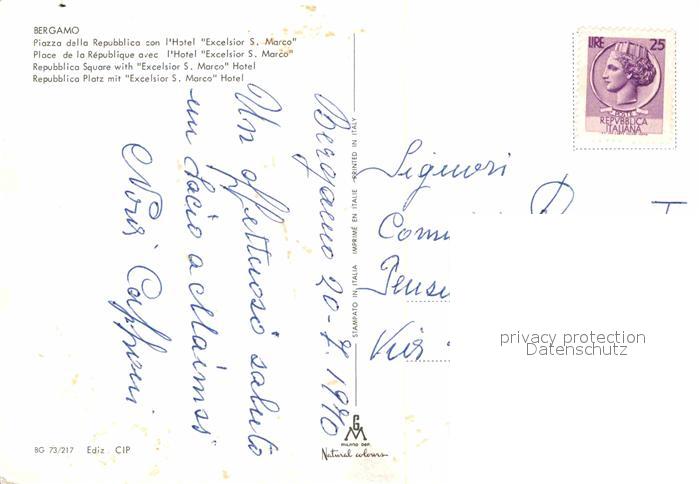 BERGAMO
Piazza della Repubblica con l'Hotel "Excelsior S. Marco"
Place de la République avec l'Hotel "Excelsior S. Marco"
Repubblica Square with "Excelsior S. Marco" Hotel
Repubblica Platz mit "Excelsior S. Marco" Hotel
Bergamo 20-7.1970
Un affettuoso saluto
un bacio a
STAMPATO IN ITALIA IMPRIMÉ EN ITALIE PRINTED IN ITALY
LIRE 25
POSTE
REPVBBLICA
ITALIANA
Signori
privacy protection
Datenschutz
GM
MILANO DEP.
Natural colours
BG 73/217 Ediz. CIP